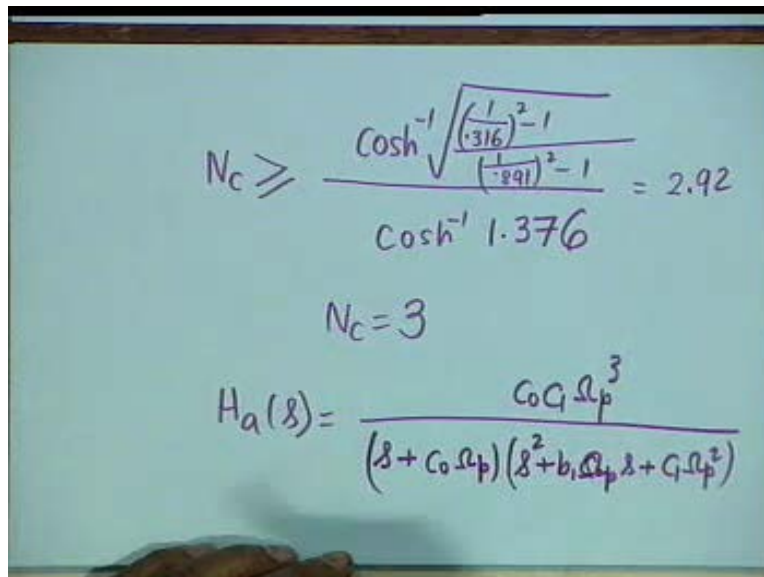 N_C ≥ cosh⁻¹ √(((1/.316)² - 1)/((1/.891)² - 1)) / cosh⁻¹ 1.376 = 2.92
N_C = 3
H_a(s) = C₀C₁Ω_p³ / (s + C₀Ω_p)(s² + b₁Ω_p s + C₁Ω_p²)